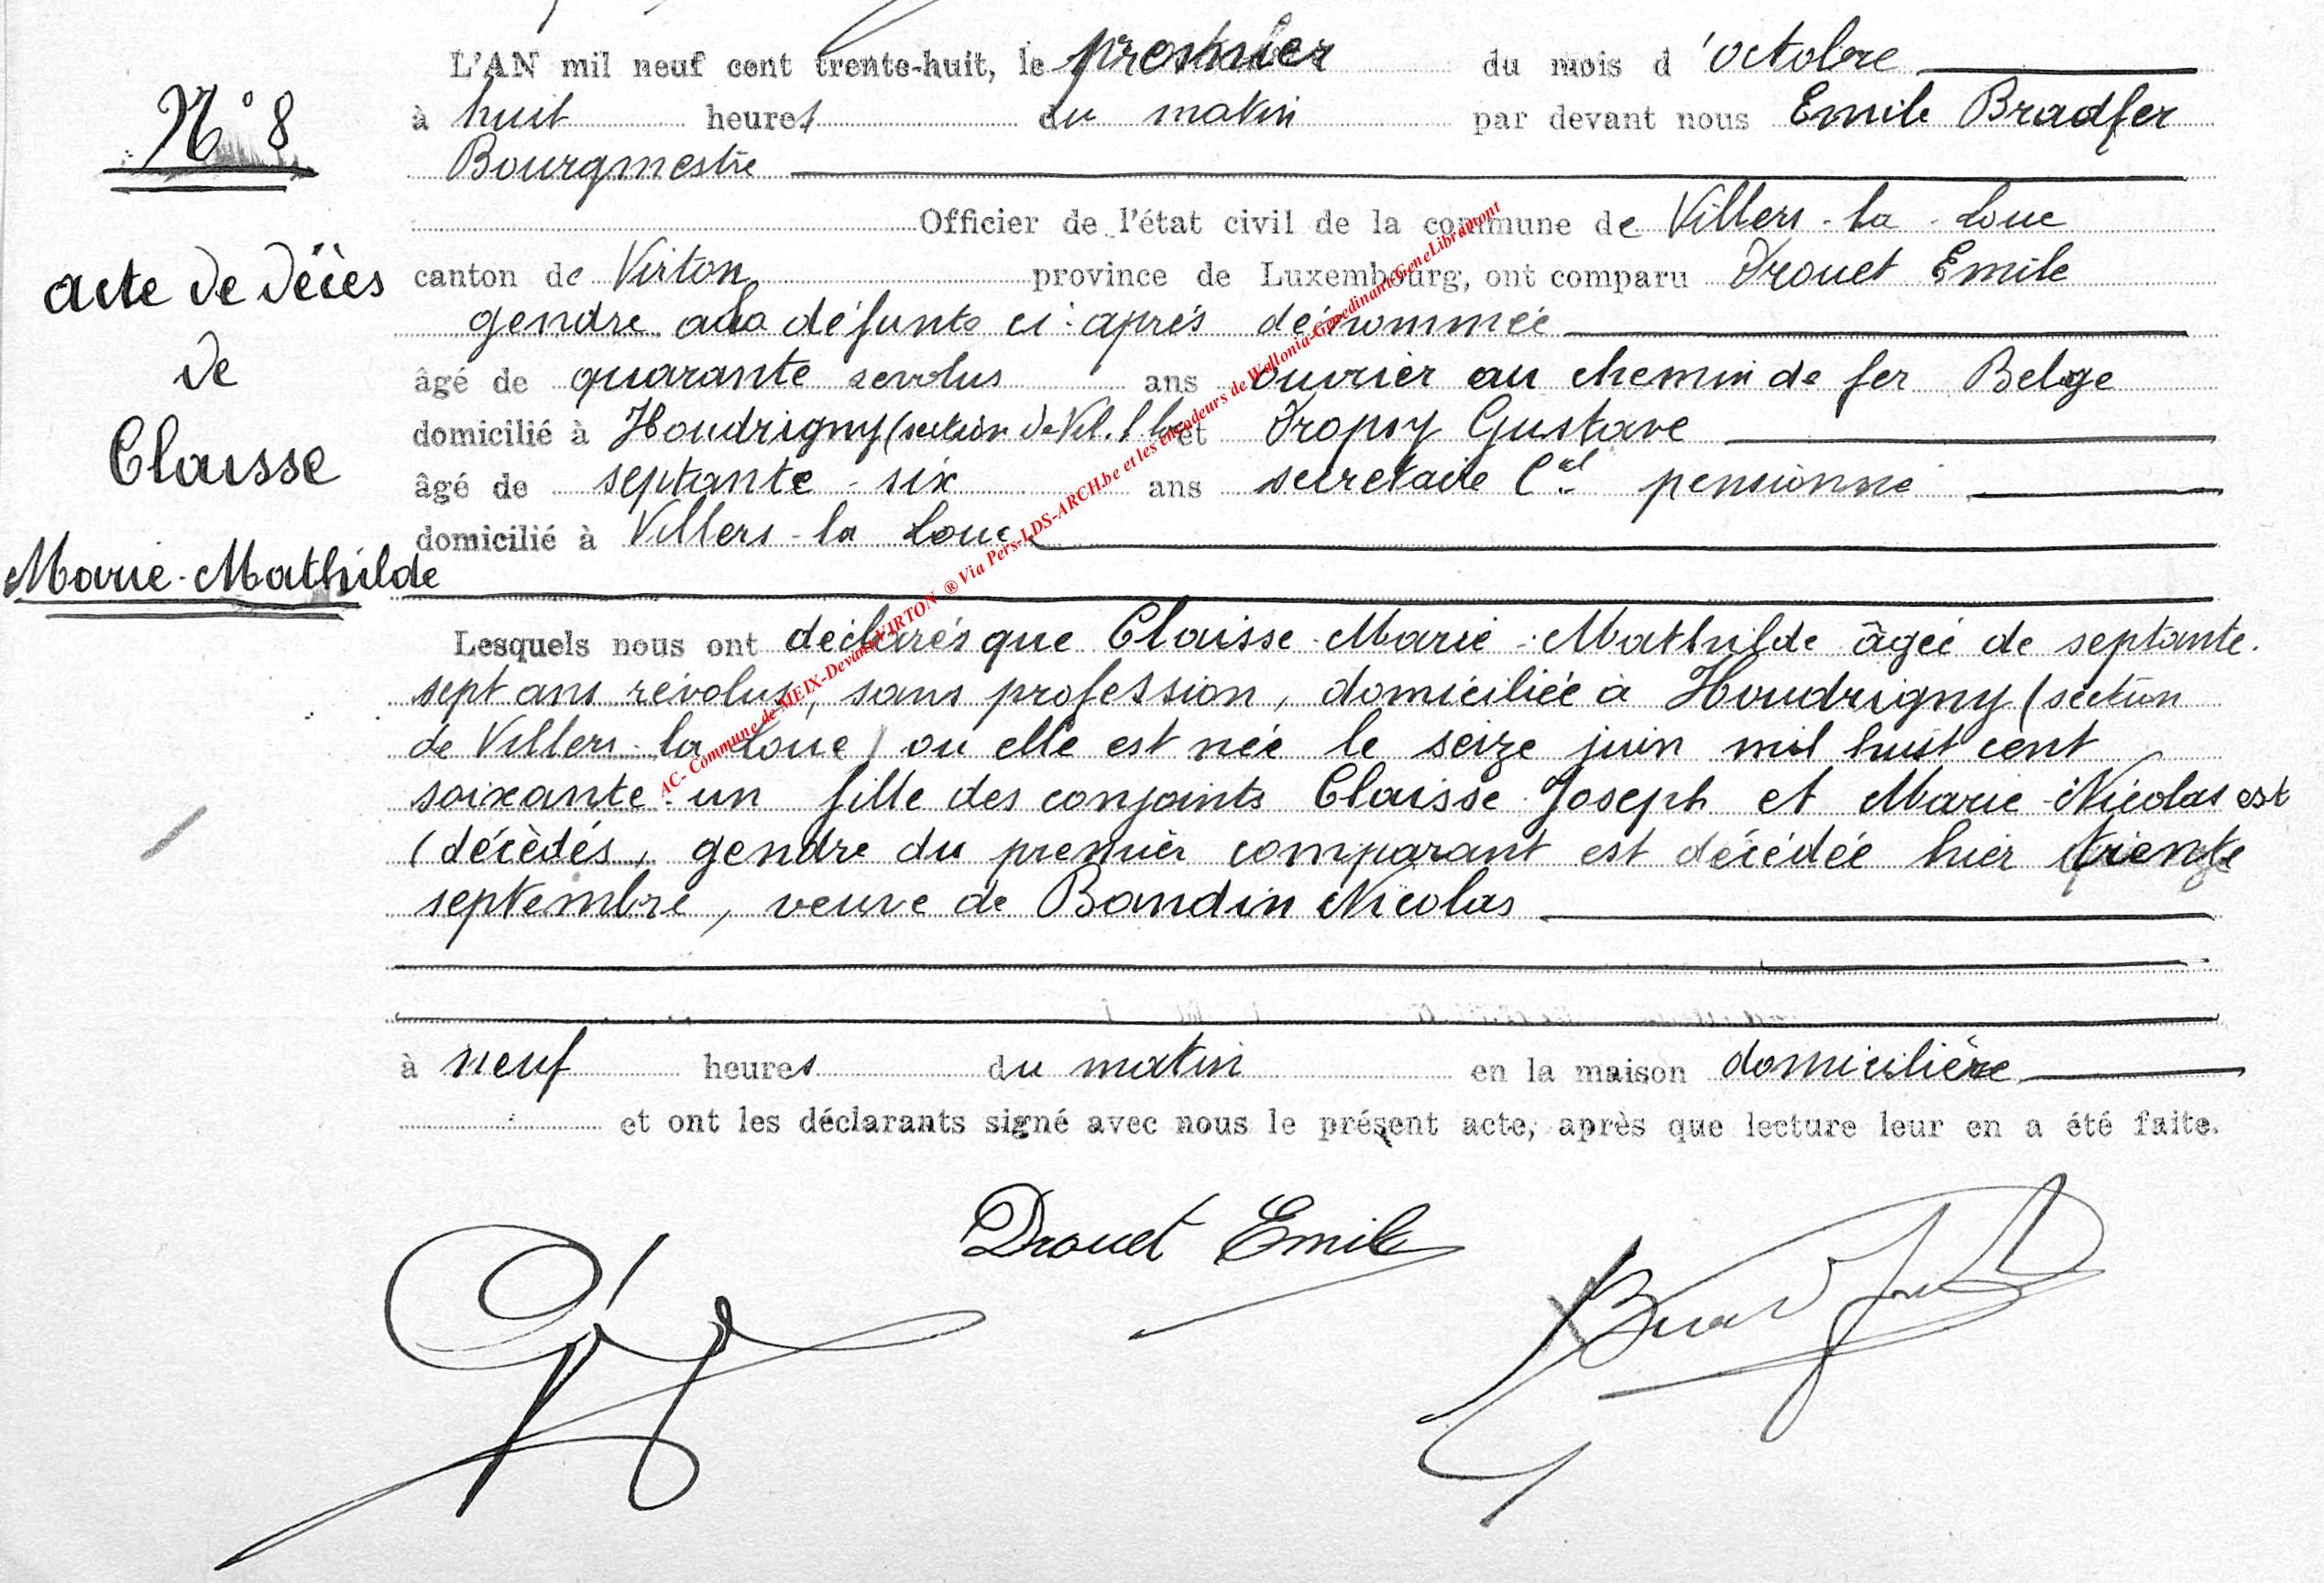 L'AN mil neuf cent trente-huit, le premier du mois d'octobre
N° 8
à huit heures du matin par devant nous Emile Bradfer
Bourgmestre
Officier de l'état civil de la commune de Villers-la-Loue
acte de décès
canton de Virton province de Luxembourg, ont comparu Drouet Emile
gendre à la défunte ci-après dénommée
de
âgé de quarante revolus ans ouvrier au chemin de fer Belge
Clausse
domicilié à Houdrigny (section de Vil. l. L. et Tropsy Gustave
âgé de septante-six ans secretaire Cal pensionné
domicilié à Villers-la Loue
Marie-Mathilde
Lesquels nous ont déclarés que Claisse Marie-Mathilde âgée de septante-
sept ans révolus, sans profession, domiciliée à Houdrigny (section
de Villers-la Loue) ou elle est née le seize juin mil huit cent
soixante-un fille des conjoints Claisse Joseph et Marie-Nicolas est
(décédés, gendre du premier comparant est décédée hier trente
septembre, veuve de Baudin Nicolas
à neuf heures du matin en la maison domicilière
et ont les déclarants signé avec nous le présent acte, après que lecture leur en a été faite.
Drouet Emile
AC- Commune de MEIX-Devant-VIRTON ® Via Pers-LDS-ARCH.be et les encodeurs de Wallonia-Genedinant-GeneLibramont